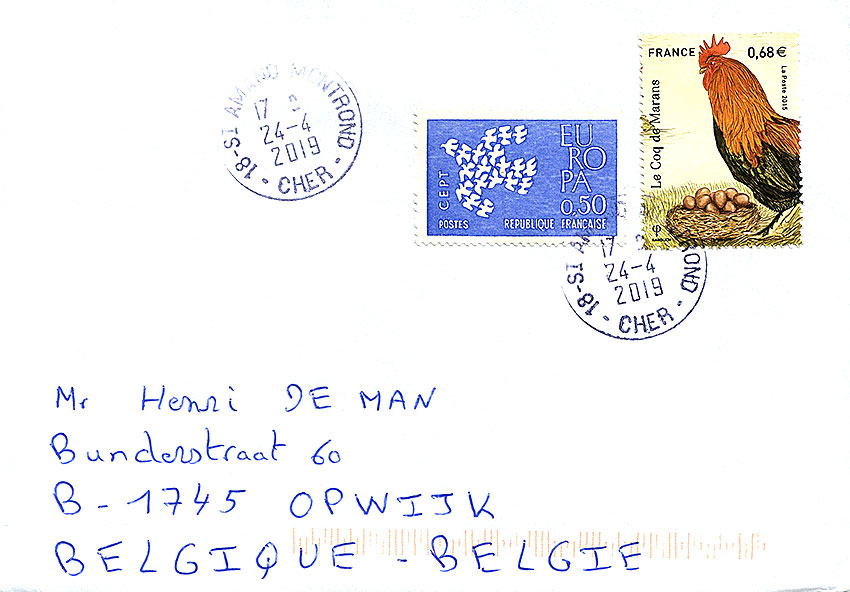 18-ST AMAND MONTROND
17
24-4
2019
- CHER -
EUROPA
0,50
CEPT
POSTES RÉPUBLIQUE FRANÇAISE
FRANCE 0,68 €
Le Coq de Marans
La Poste 2015
18-ST AM
17
24-4
2019
OND
- CHER -
Mr Henri DE MAN
Bunderstraat 60
B-1745 OPWIJK
BELGIQUE - BELGIE